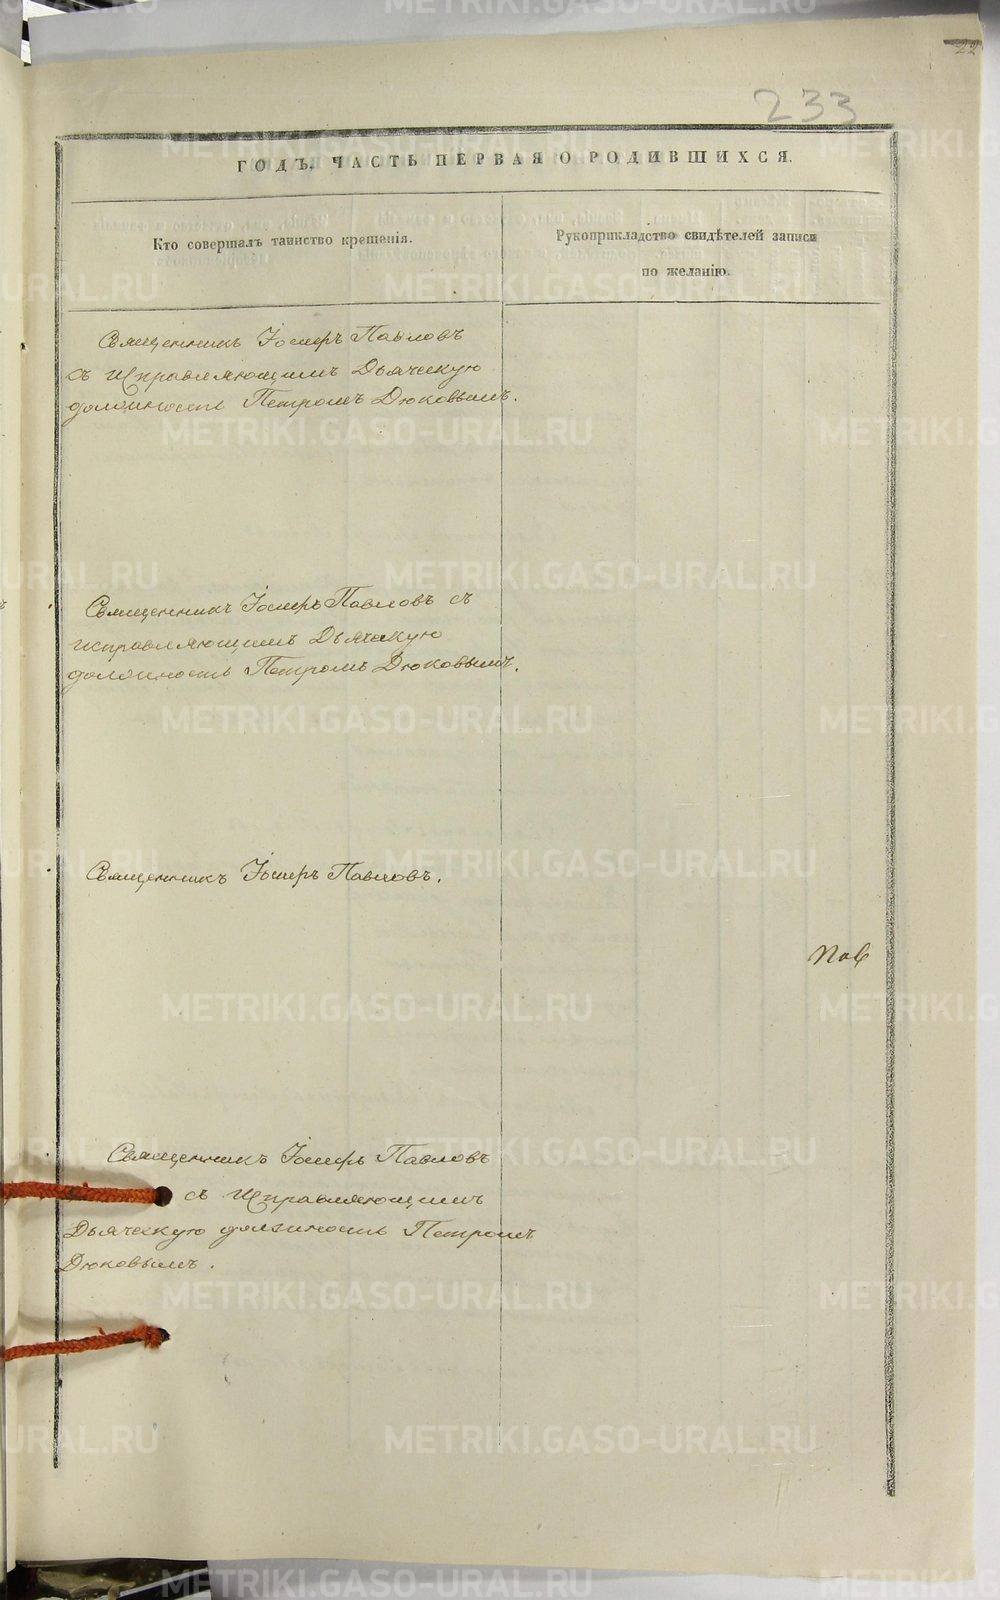 22
233
ГОДЪ, ЧАСТЬ ПЕРВАЯ О РОДИВШИХСЯ.
Кто совершалъ таинство крещенія.
Рукоприкладство свидѣтелей записи
по желанію.
Священникъ Іосифъ Павловъ
съ исправляющимъ Дьяческую
должность Петромъ Дюковымъ.
Священникъ Іосифъ Павловъ съ
исправляющимъ Дьяческую
должность Петромъ Дюковымъ.
Священникъ Іосифъ Павловъ.
Пав
Священникъ Іосифъ Павловъ
съ исправляющимъ
Дьяческую должность Петромъ
Дюковымъ.
METRIKI.GASO-URAL.RU